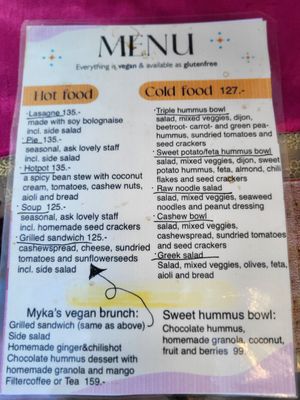 MENU
Everything is vegan & available as glutenfree
Hot food
· Lasagne 135.-
made with soy bolognaise
incl. side salad
· Pie 135.-
seasonal, ask lovely staff
incl. side salad
· Hotpot 135.-
a spicy bean stew with coconut
cream, tomatoes, cashew nuts,
aioli and bread
· Soup 125.-
seasonal, ask lovely staff
incl. homemade seed crackers
· Grilled sandwich 125.-
cashewspread, cheese, sundried
tomatoes and sunflowerseeds
incl. side salad
Cold food 127.-
· Triple hummus bowl
salad, mixed veggies, dijon,
beetroot- carrot- and green pea-
hummus, sundried tomatoes and
seed crackers
· Sweet potato/feta hummus bowl
salad, mixed veggies, dijon, sweet
potato hummus, feta, almond, chili
flakes and seed crackers
· Raw noodle salad
salad, mixed veggies, seaweed
noodles and peanut dressing
· Cashew bowl
salad, mixed veggies,
cashewspread, sundried tomatoes
and seed crackers
· Greek salad
Salad, mixed veggies, olives, feta,
aioli and bread
Myka's vegan brunch:
Grilled sandwich (same as above)
Side salad
Homemade ginger&chilishot
Chocolate hummus dessert with
homemade granola and mango
Filtercoffee or Tea 159.-
Sweet hummus bowl:
Chocolate hummus,
homemade granola, coconut,
fruit and berries 99